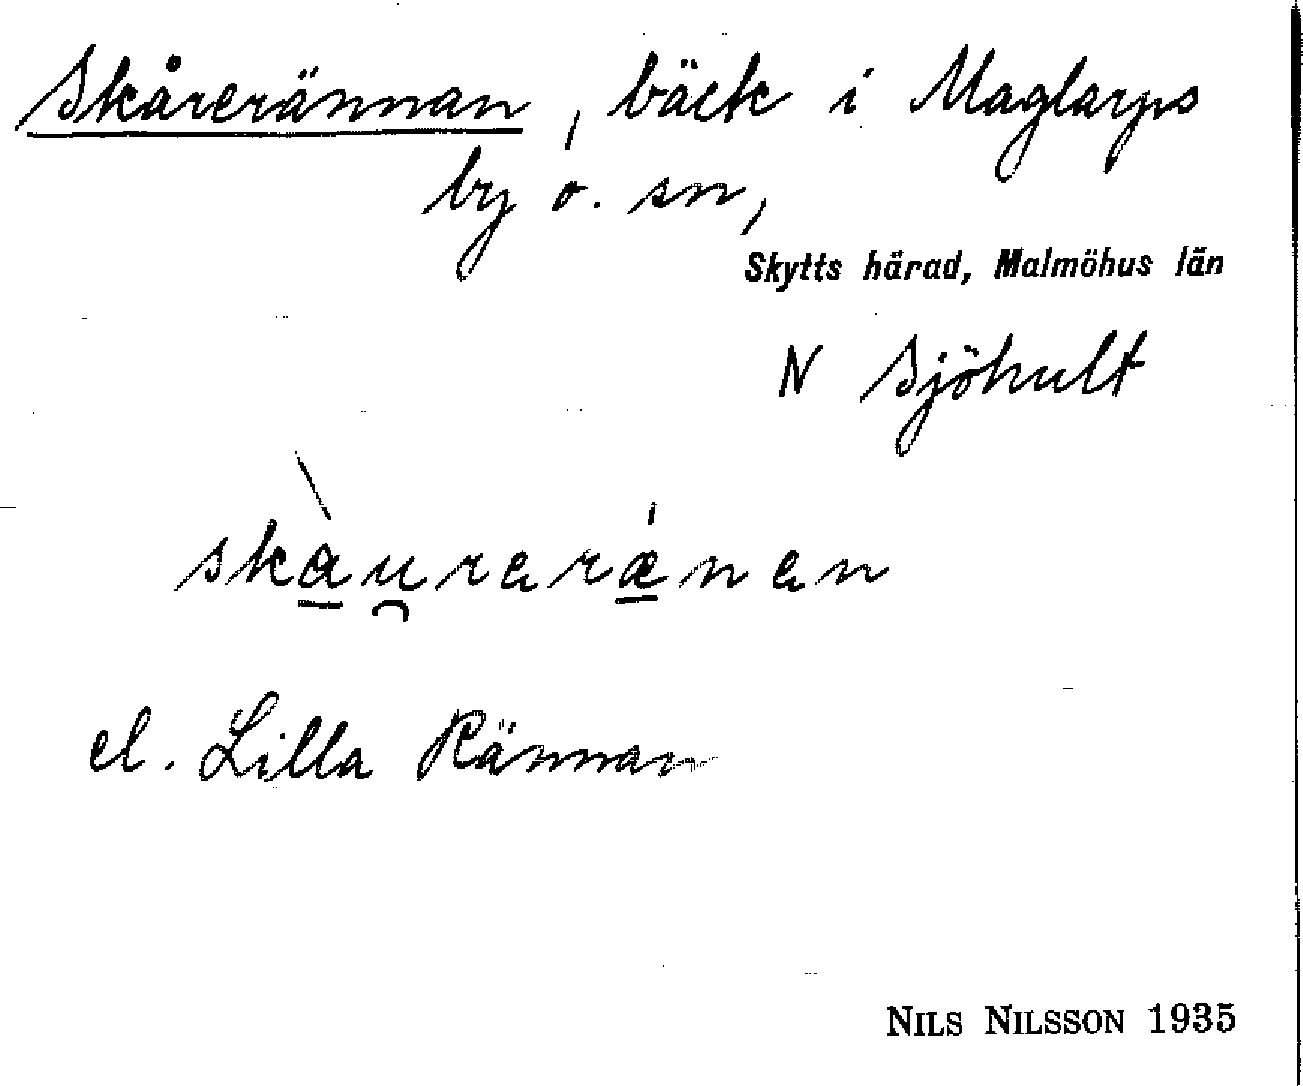 Skårerännan, bäck i Maglarps
by o. sn,
Skytts härad, Malmöhus län
N Sjöhult
skàu̯rarǽnan
el. Lilla Rännan
NILS NILSSON 1935